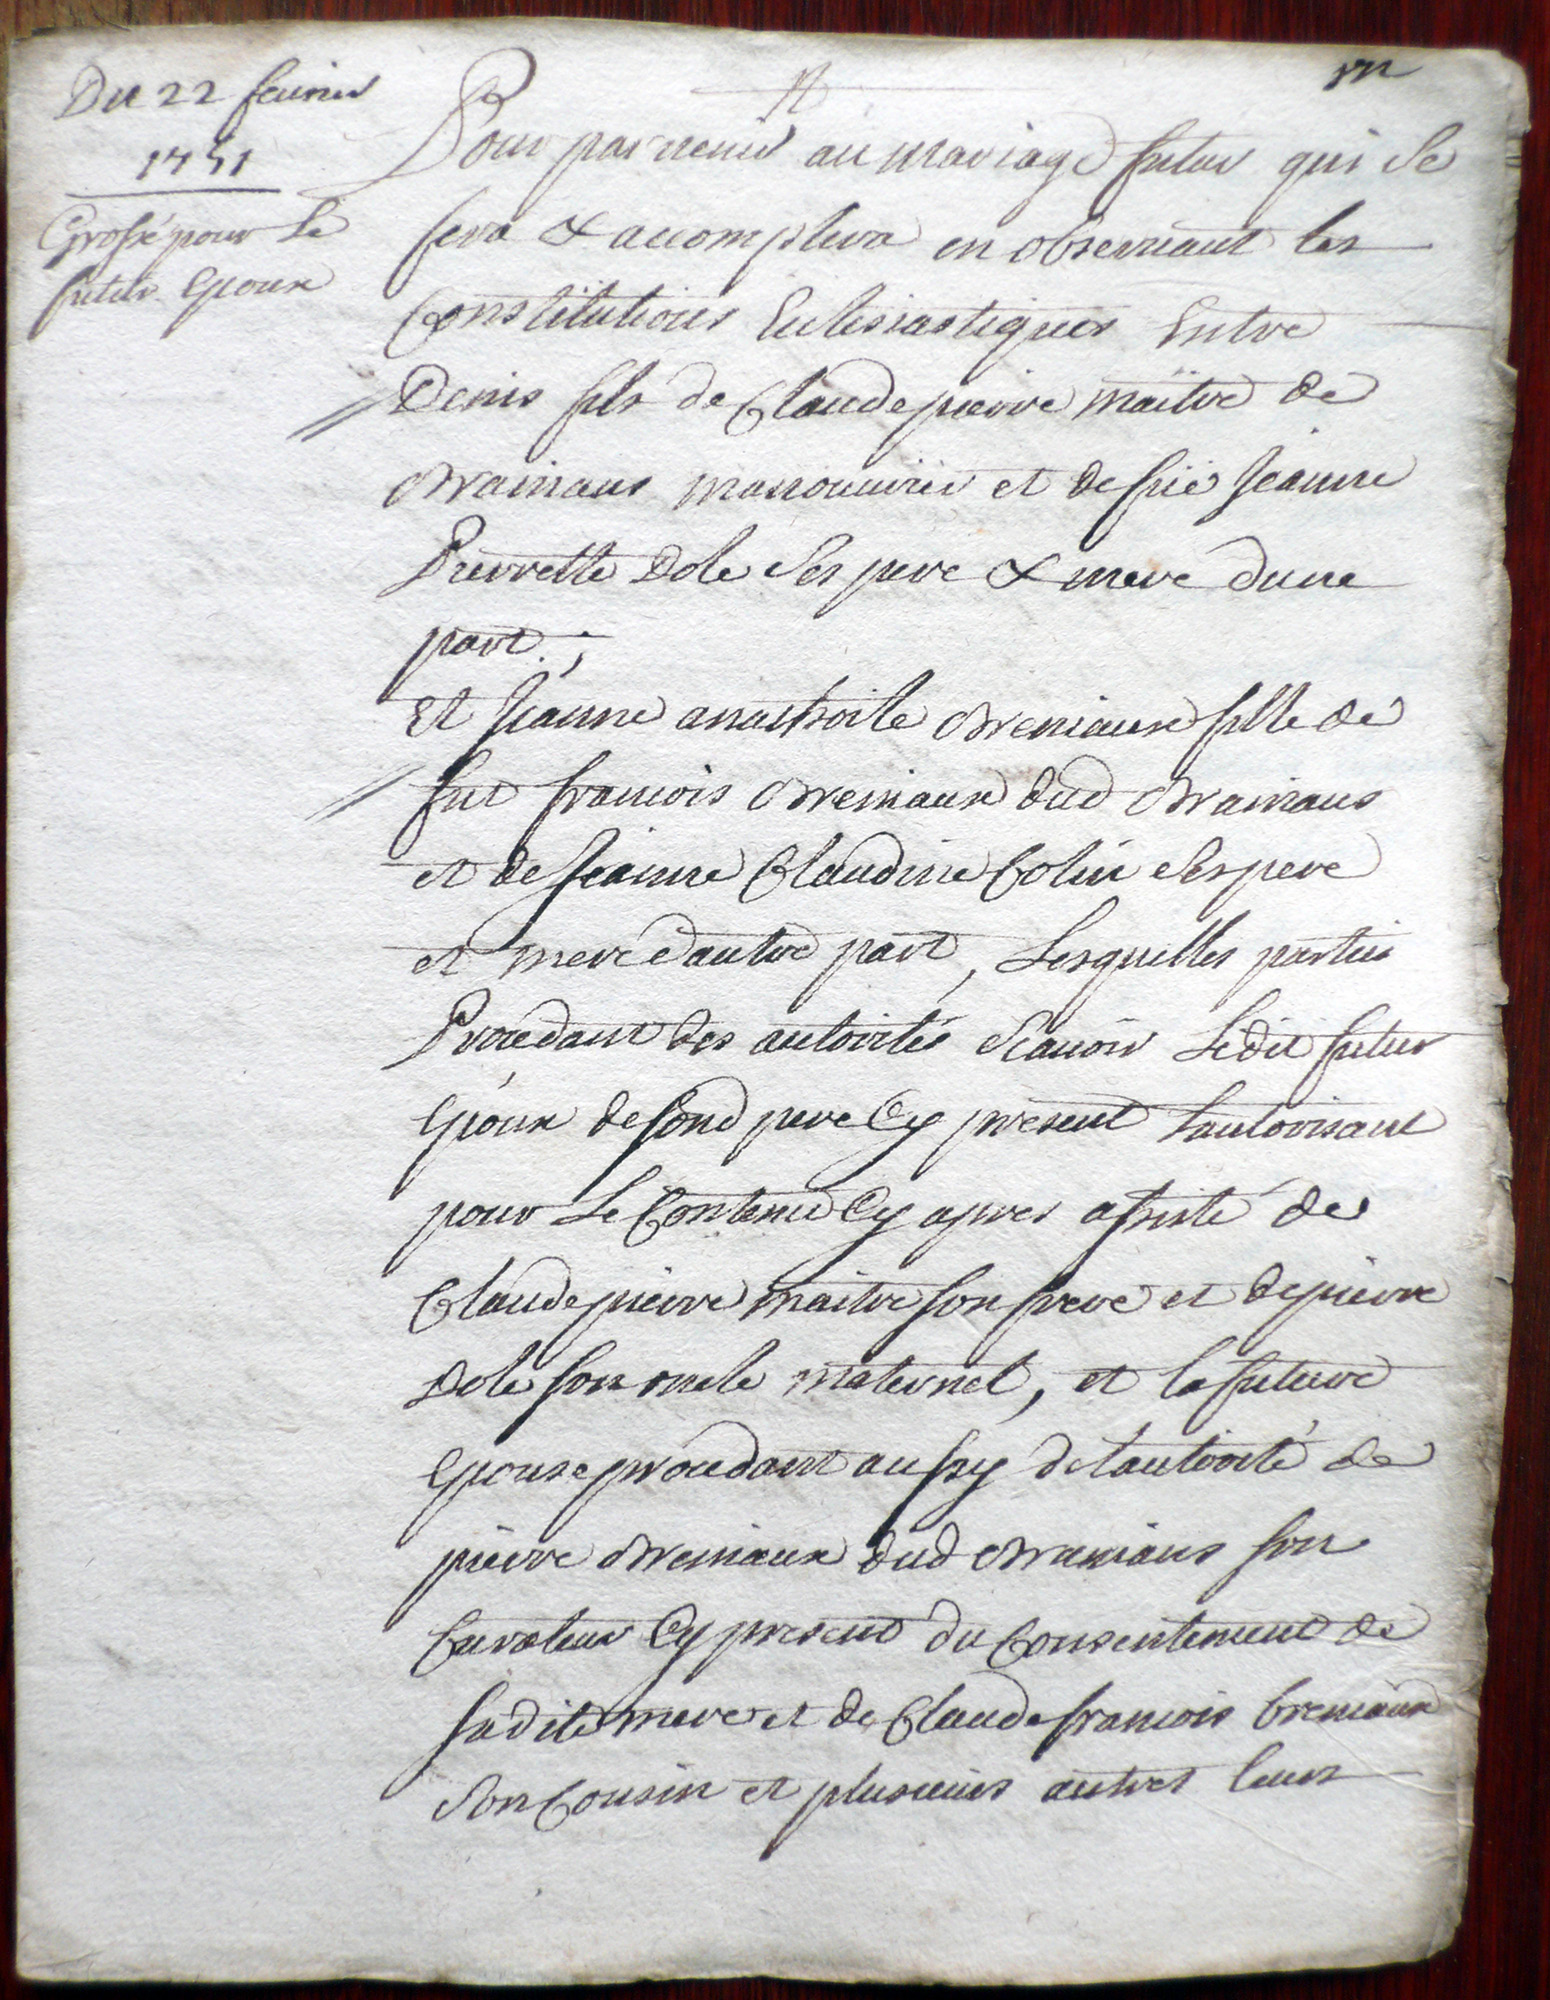 Du 22 fevrier
1751
Grossé pour le
futur Epoux
Pour parvenir au mariage futur qui se
fera & accomplira en observant les
Constitutions Eclesiastiques Entre
Denis fils de Claude pierre maître de
Orainans manouvrier et de fuë Jeanne
Pierrette Dole Ses pere & mere dune
part ;
et Jeanne anathoile breniaux fille de
fut francois breniaux dud Orainans
et de Jeanne Claudine Colin Ses pere
et mere dautre part, Lesquelles parties
Procedant des autorités Scavoir Ledit futur
Epoux de sond pere Cy present Lautorisant
pour Le Contenu Cy apres assisté de
Claude pierre maitre son frere et de pierre
Dole son oncle maternel, et la future
Epouse procedant aussy de lautorité de
pierre breniaux dud Orainans son
Curateur Cy present du Consentement de
sadite mere et de Claude francois breniaux
Son Cousin et plusieurs autres leurs